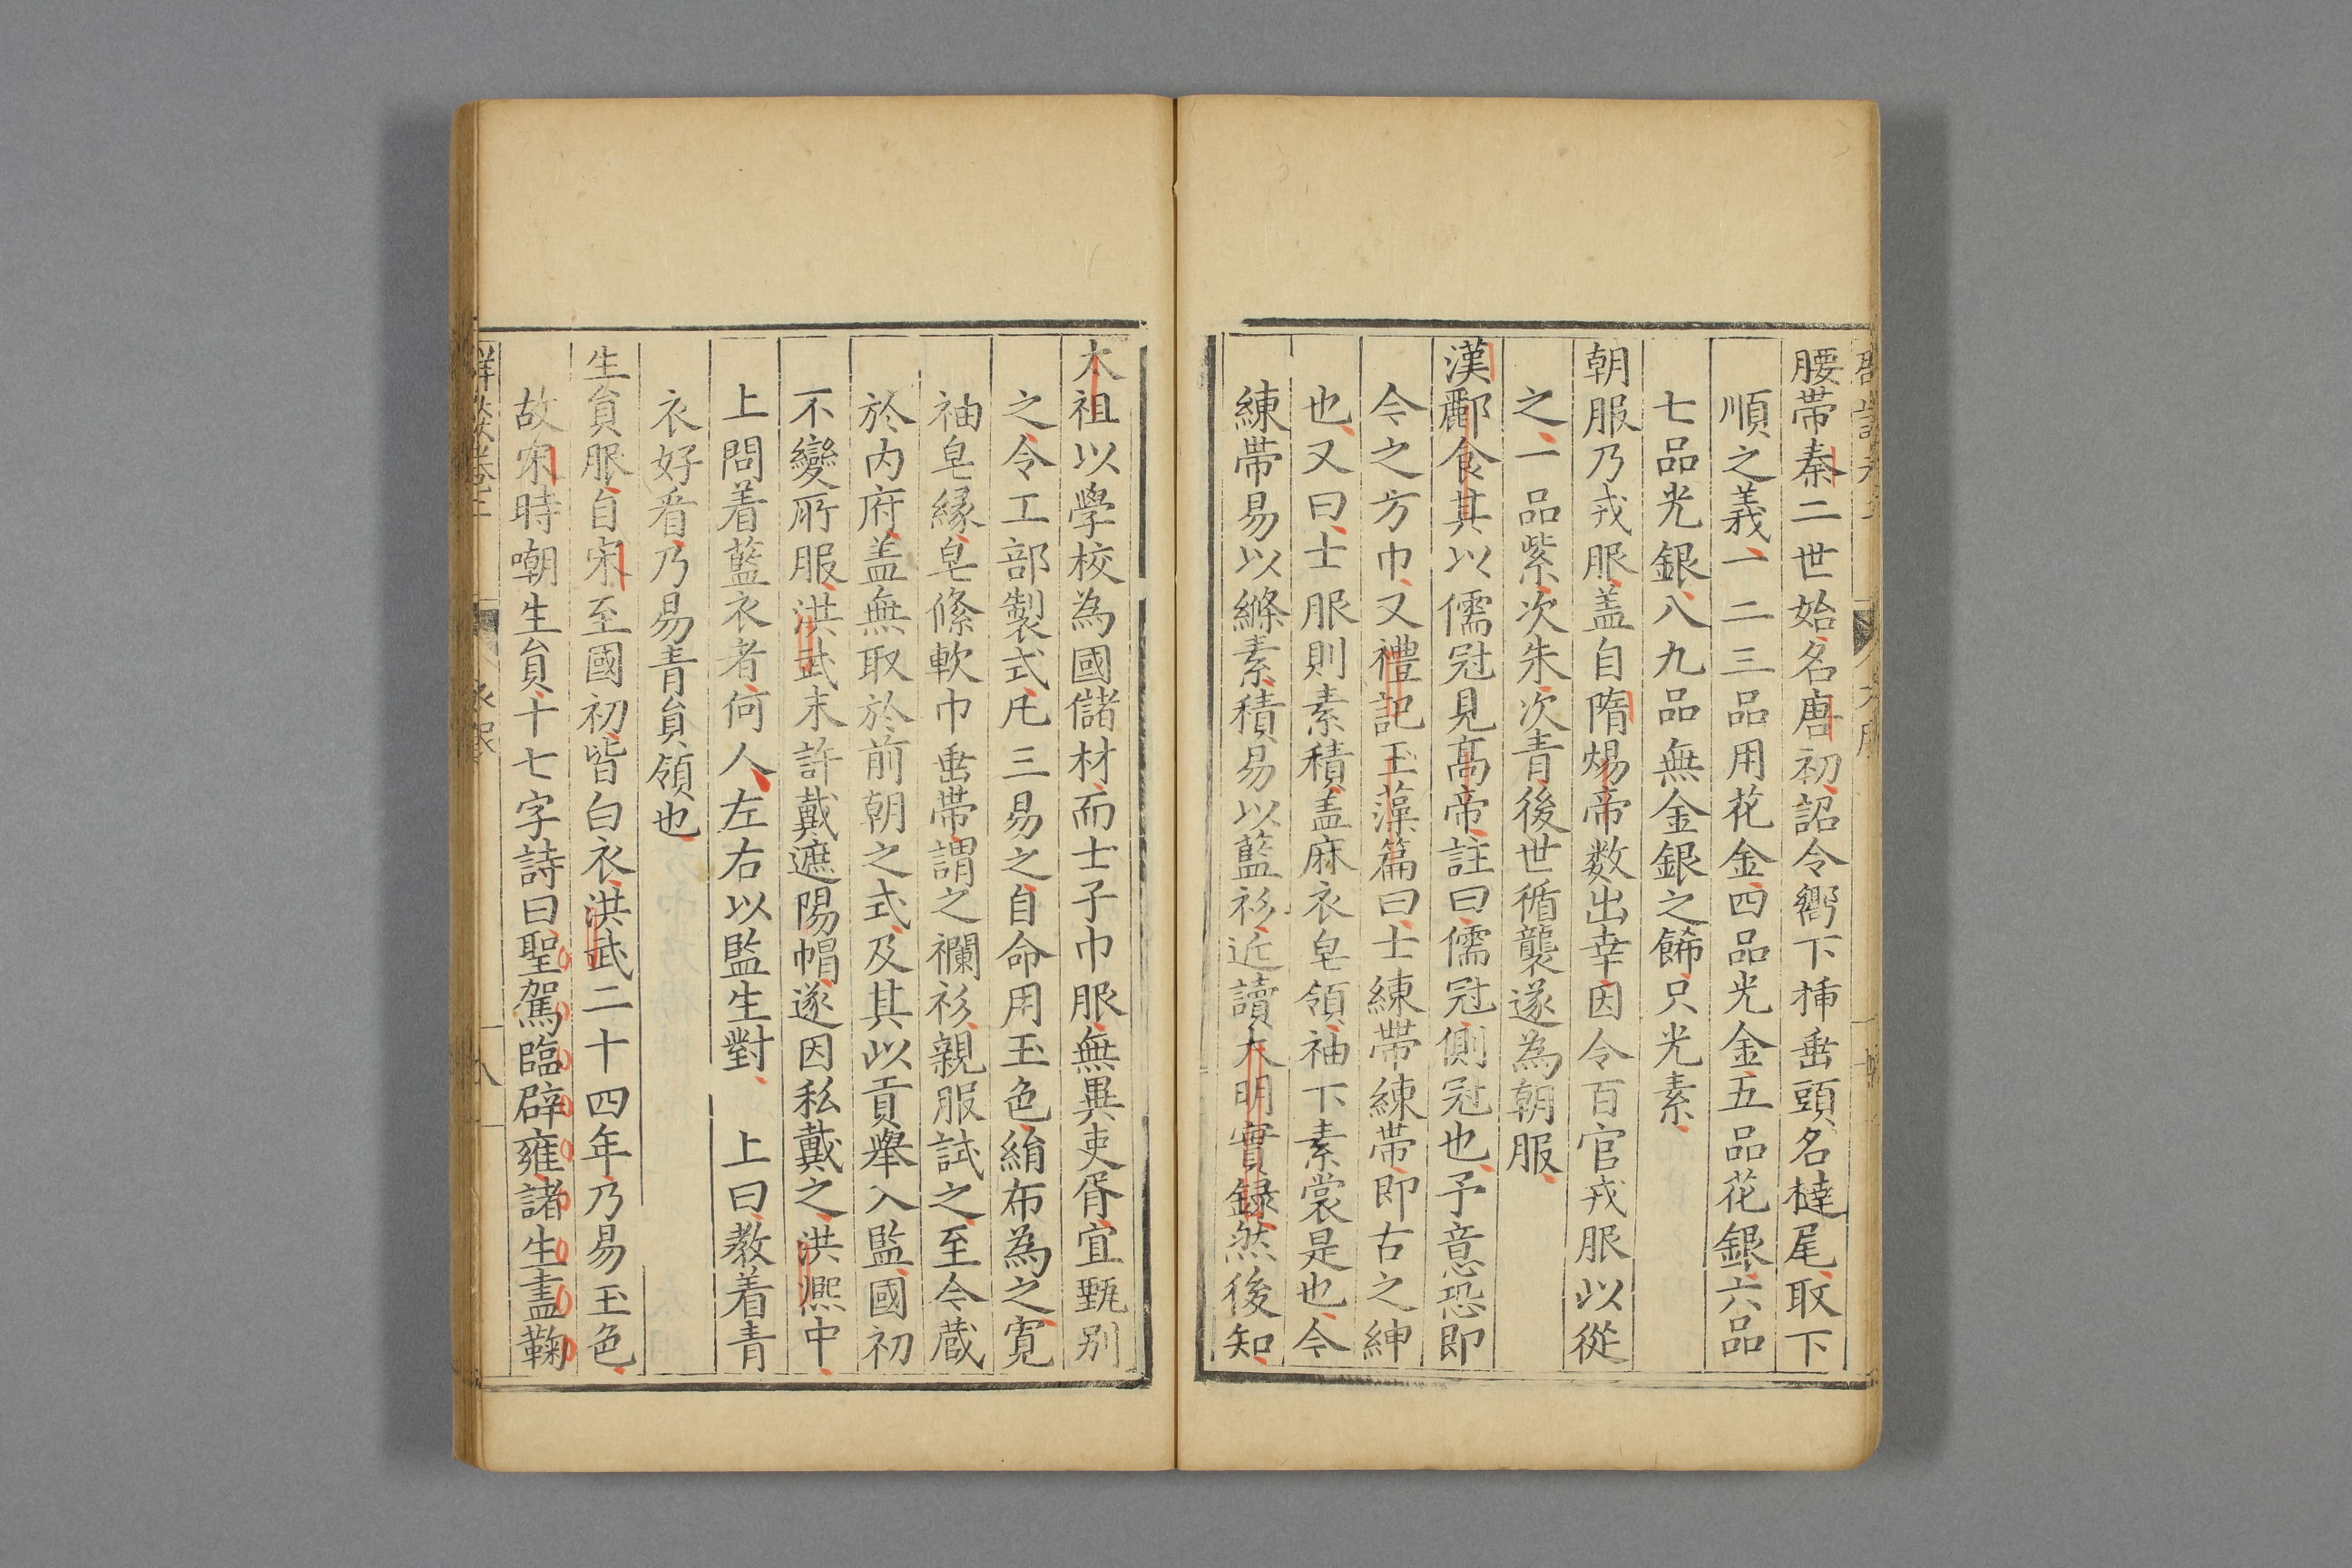 腰帶秦二世始名唐初詔令嚮下插垂頭名撻尾取下
順之義一二三品用花金四品光金五品花銀六品
七品光銀八九品無金銀之餙只光素
朝服乃戎服盖自隋煬帝数出幸因令百官戎服以從
之一品紫次朱次青後世循襲遂為朝服
漢酈食其以儒冠見高帝註曰儒冠側冠也予意恐即
今之方巾又禮記玉藻篇曰士練帶練帶即古之紳
也又曰士服則素積盖麻衣皂領袖下素裳是也今
練帶易以絛素積易以藍衫近讀大明實録然後知
太祖以學校為國儲材而士子巾服無異吏胥宜甄別
之令工部製式凡三易之自命用玉色絹布為之寬
袖皂緣皂絛軟巾垂帶謂之襴衫親服試之至今蔵
於内府盖無取於前朝之式及其以貢舉入監國初
不變所服洪武末許戴遮陽帽遂因私戴之洪熈中
上問着藍衣者何人左右以監生對　上曰教着青
衣好看乃易青貟領也
生貟服自宋至國初皆白衣洪武二十四年乃易玉色
故宋時嘲生貟十七字詩曰聖駕臨辟雍諸生盡鞠